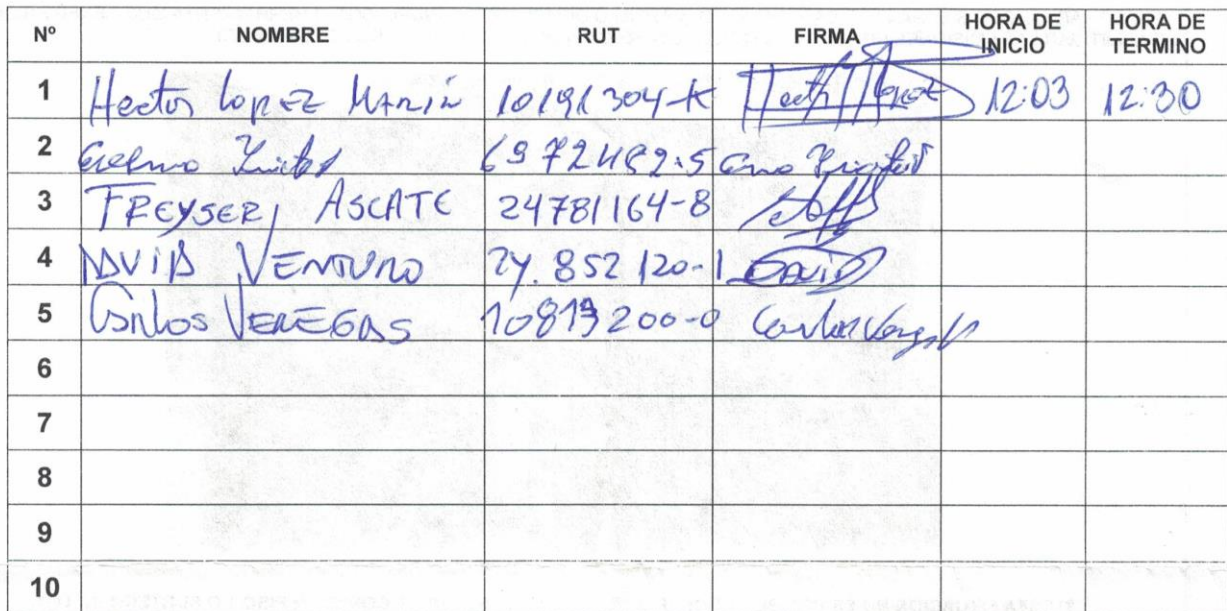 Nº NOMBRE RUT FIRMA HORA DE INICIO HORA DE TERMINO
1 Hector Lopez Marin 10191304-K Hector Lopez 12:03 12:30
2
3 FREYSER ASCATE 24781164-8
4 DAVID VENTURO 24.852120-1 DAVID
5 Carlos VENEGAS 10819200-0 Carlos
6
7
8
9
10